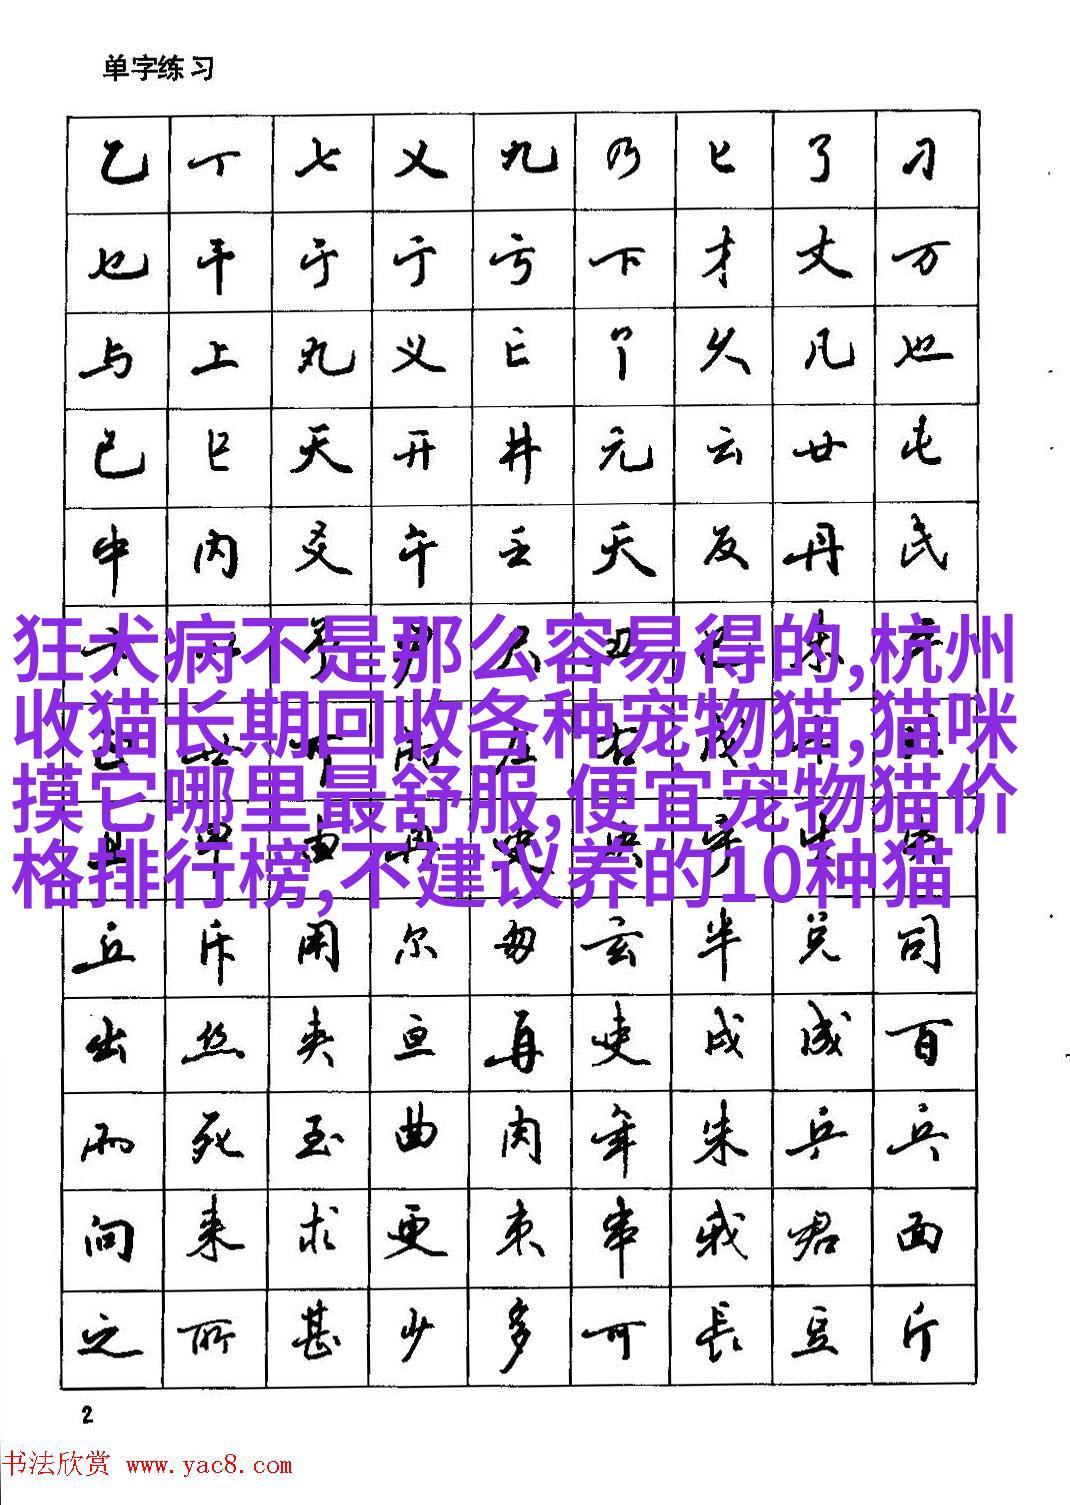 单字练习
乙 丁 七 乂 九 乃 匕 了 刁
也 干 于 于 亏 下 才 丈 万
与 上 丸 义 亡 卩 久 凡 也
已 巳 天 开 井 元 云 廿 屯
中 内 爻 午 壬 夭 反 丹 氏
狂犬病不是那么容易得的,杭州
收猫长期回收各种宠物猫,猫咪
摸它哪里最舒服,便宜宠物猫价
格排行榜,不建议养的10种猫
丘 斥 用 尔 匆 玄 半 兑 司
出 丝 夹 亘 再 吏 戍 成 百
雨 死 至 曲 肉 年 朱 乒 乓
向 来 求 更 束 串 我 君 面
之 所 甚 少 多 可 長 豆 斤
2
书法欣赏 www.yac8.com